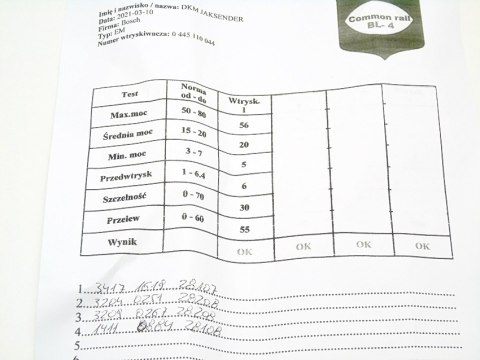 Imię i nazwisko / nazwa: DKM JAKSENDER
Data: 2021-03-10
Firma: Bosch
Typ: EM
Numer wtryskiwacza: 0 445 116 044
Common rail
BL- 4
Test Norma od - do Wtrysk. 1
Max.moc 50 - 80 56
Średnia moc 15 - 20 20
Min. moc 3 - 7 5
Przedwtrysk 1 - 6.4 6
Szczelność 0 - 70 30
Przelew 0 - 60 55
Wynik OK OK OK OK
1...3417 1619 28107
2...3204 0251 28208
3...3209 0267 28208
4...1411 0864 28108
5
6